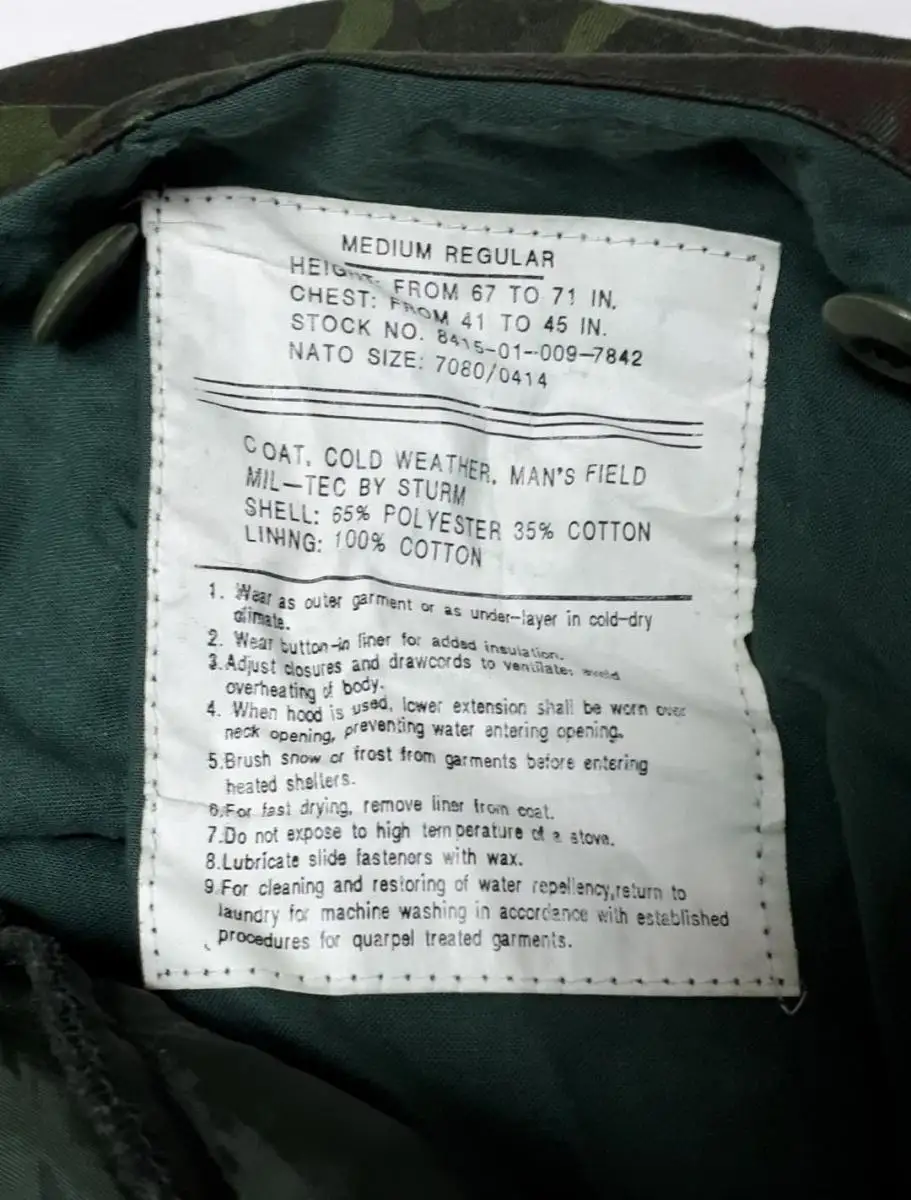 MEDIUM REGULAR
HEIGHT: FROM 67 TO 71 IN.
CHEST: FROM 41 TO 45 IN.
STOCK NO. 8415-01-009-7842
NATO SIZE: 7080/0414
COAT, COLD WEATHER, MAN'S FIELD
MIL-TEC BY STURM
SHELL: 65% POLYESTER 35% COTTON
LINING: 100% COTTON
1. Wear as outer garment or as under-layer in cold-dry
climate.
2. Wear button-in liner for added insulation.
3.Adjust closures and drawcords to ventilate; avoid
overheating of body.
4. When hood is used, lower extension shall be worn over
neck opening, preventing water entering opening.
5.Brush snow or frost from garments before entering
heated shelters.
6.For fast drying, remove liner from coat.
7.Do not expose to high temperature of a stove.
8.Lubricate slide fasteners with wax.
9.For cleaning and restoring of water repellency,return to
laundry for machine washing in accordance with established
procedures for quarpel treated garments.